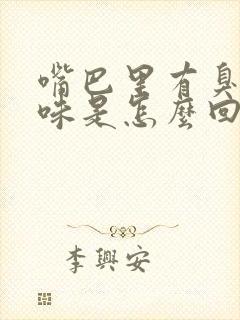 嘴巴里有臭
味是怎麽回
李興安